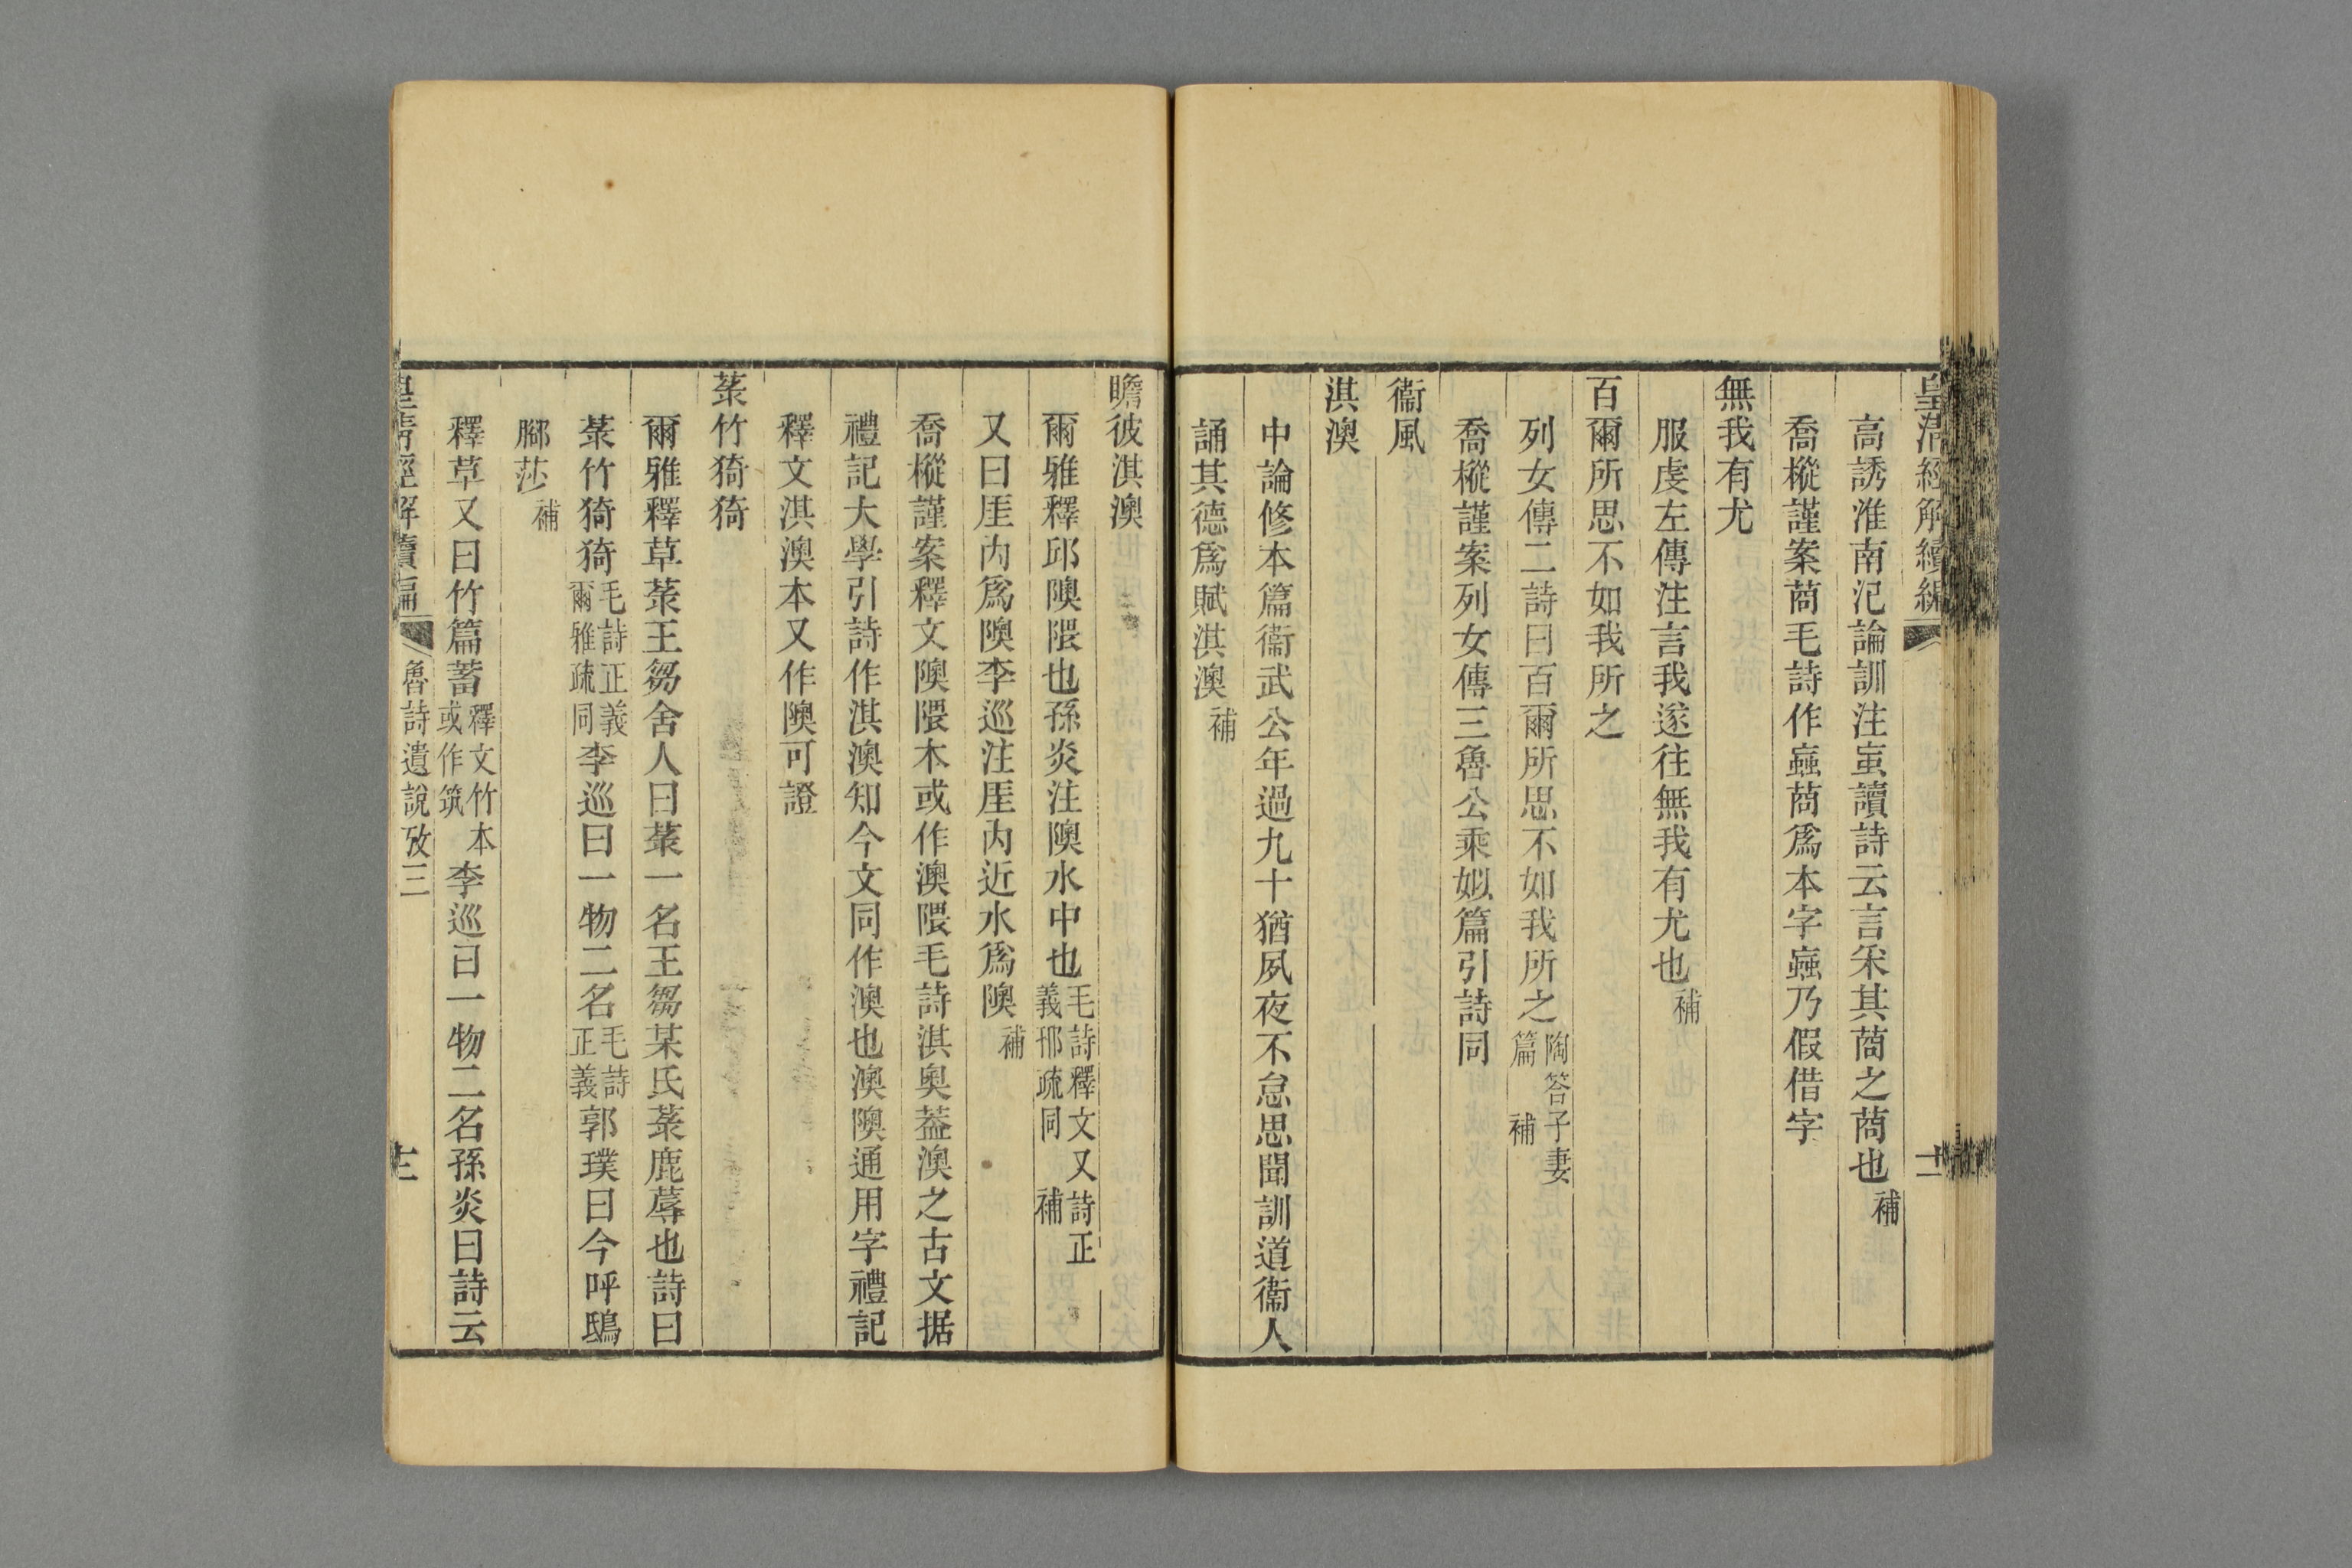 皇淸經解續編
十二
高誘淮南氾論訓注䖟讀詩云言采其莔之莔也補
喬樅謹案莔毛詩作蝱莔爲本字蝱乃假借字
無我有尤
服虔左傳注言我遂往無我有尤也補
百爾所思不如我所之
列女傳二詩曰百爾所思不如我所之陶荅子妻篇補
喬樅謹案列女傳三魯公乘姒篇引詩同
衞風
淇澳
中論修本篇衞武公年過九十猶夙夜不怠思聞訓道衞人
誦其德爲賦淇澳補
瞻彼淇澳
爾雅釋邱隩隈也孫炎注隩水中也毛詩釋文又詩正義邢疏同補
又曰厓內爲隩李巡注厓內近水爲隩補
喬樅謹案釋文隩隈本或作澳隈毛詩淇奧葢澳之古文据
禮記大學引詩作淇澳知今文同作澳也澳隩通用字禮記
釋文淇澳本又作隩可證
菉竹猗猗
爾雅釋草菉王芻舍人曰菉一名王芻某氏菉鹿蓐也詩曰
菉竹猗猗毛詩正義爾雅疏同李巡曰一物二名毛詩正義郭璞曰今呼鴟
腳莎補
釋草又曰竹篇蓄釋文竹本或作筑李巡曰一物二名孫炎曰詩云
皇淸經解續編
魯詩遺說攷三
十二